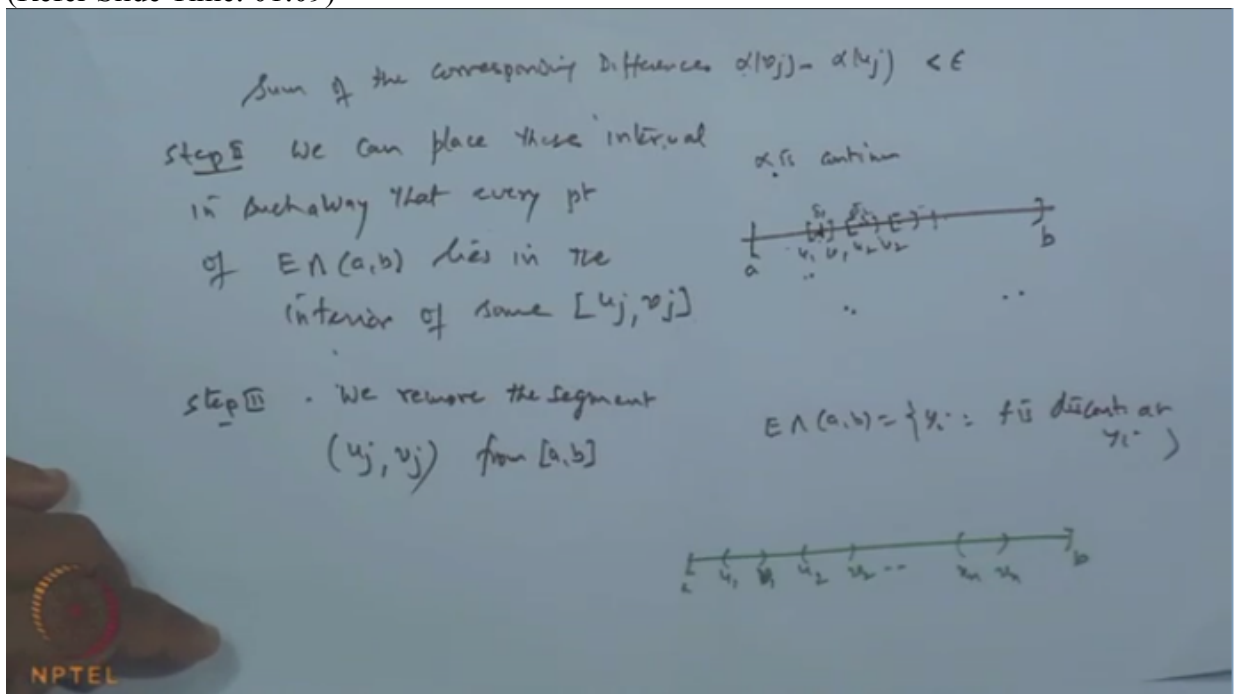 (Refer Slide Time: 01:09)
Sum of the corresponding Differences α(vj) - α(uj) < ε
Step II We can place these interval
in such a way that every pt
of E ∩ (a,b) lies in the
interior of some [uj, vj]
α is continu
y1 y2
u1 v1 u2 v2
a b
Step III . We remove the segment
(uj, vj) from [a,b]
E ∩ (a,b) = { yi : f is discont at
yi }
u1 v1 u2 v2 .. vn b
NPTEL